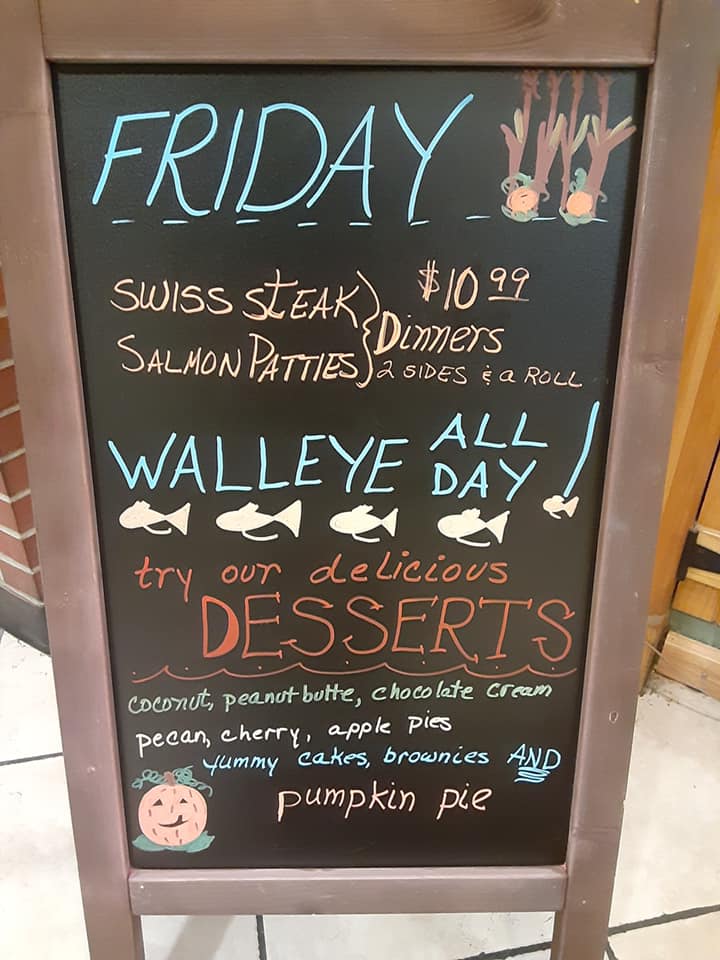 FRIDAY
SWISS STEAK } $10.99
SALMON PATTIES } Dinners
2 SIDES & a ROLL
WALLEYE ALL DAY !
try our delicious
DESSERTS
coconut, peanut butte, chocolate cream
pecan, cherry, apple pies
yummy cakes, brownies AND
pumpkin pie